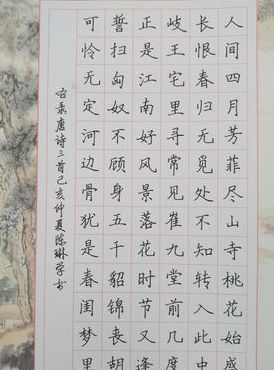 人间四月芳菲尽山寺桃花始盛
长恨春归无觅处不知转入此中
岐王宅里寻常见崔九堂前几度
正是江南好风景落花时节又逢
誓扫匈奴不顾身五千貂锦丧胡
可怜无定河边骨犹是春闺梦里
右录唐诗三首己亥仲夏陈琳学书